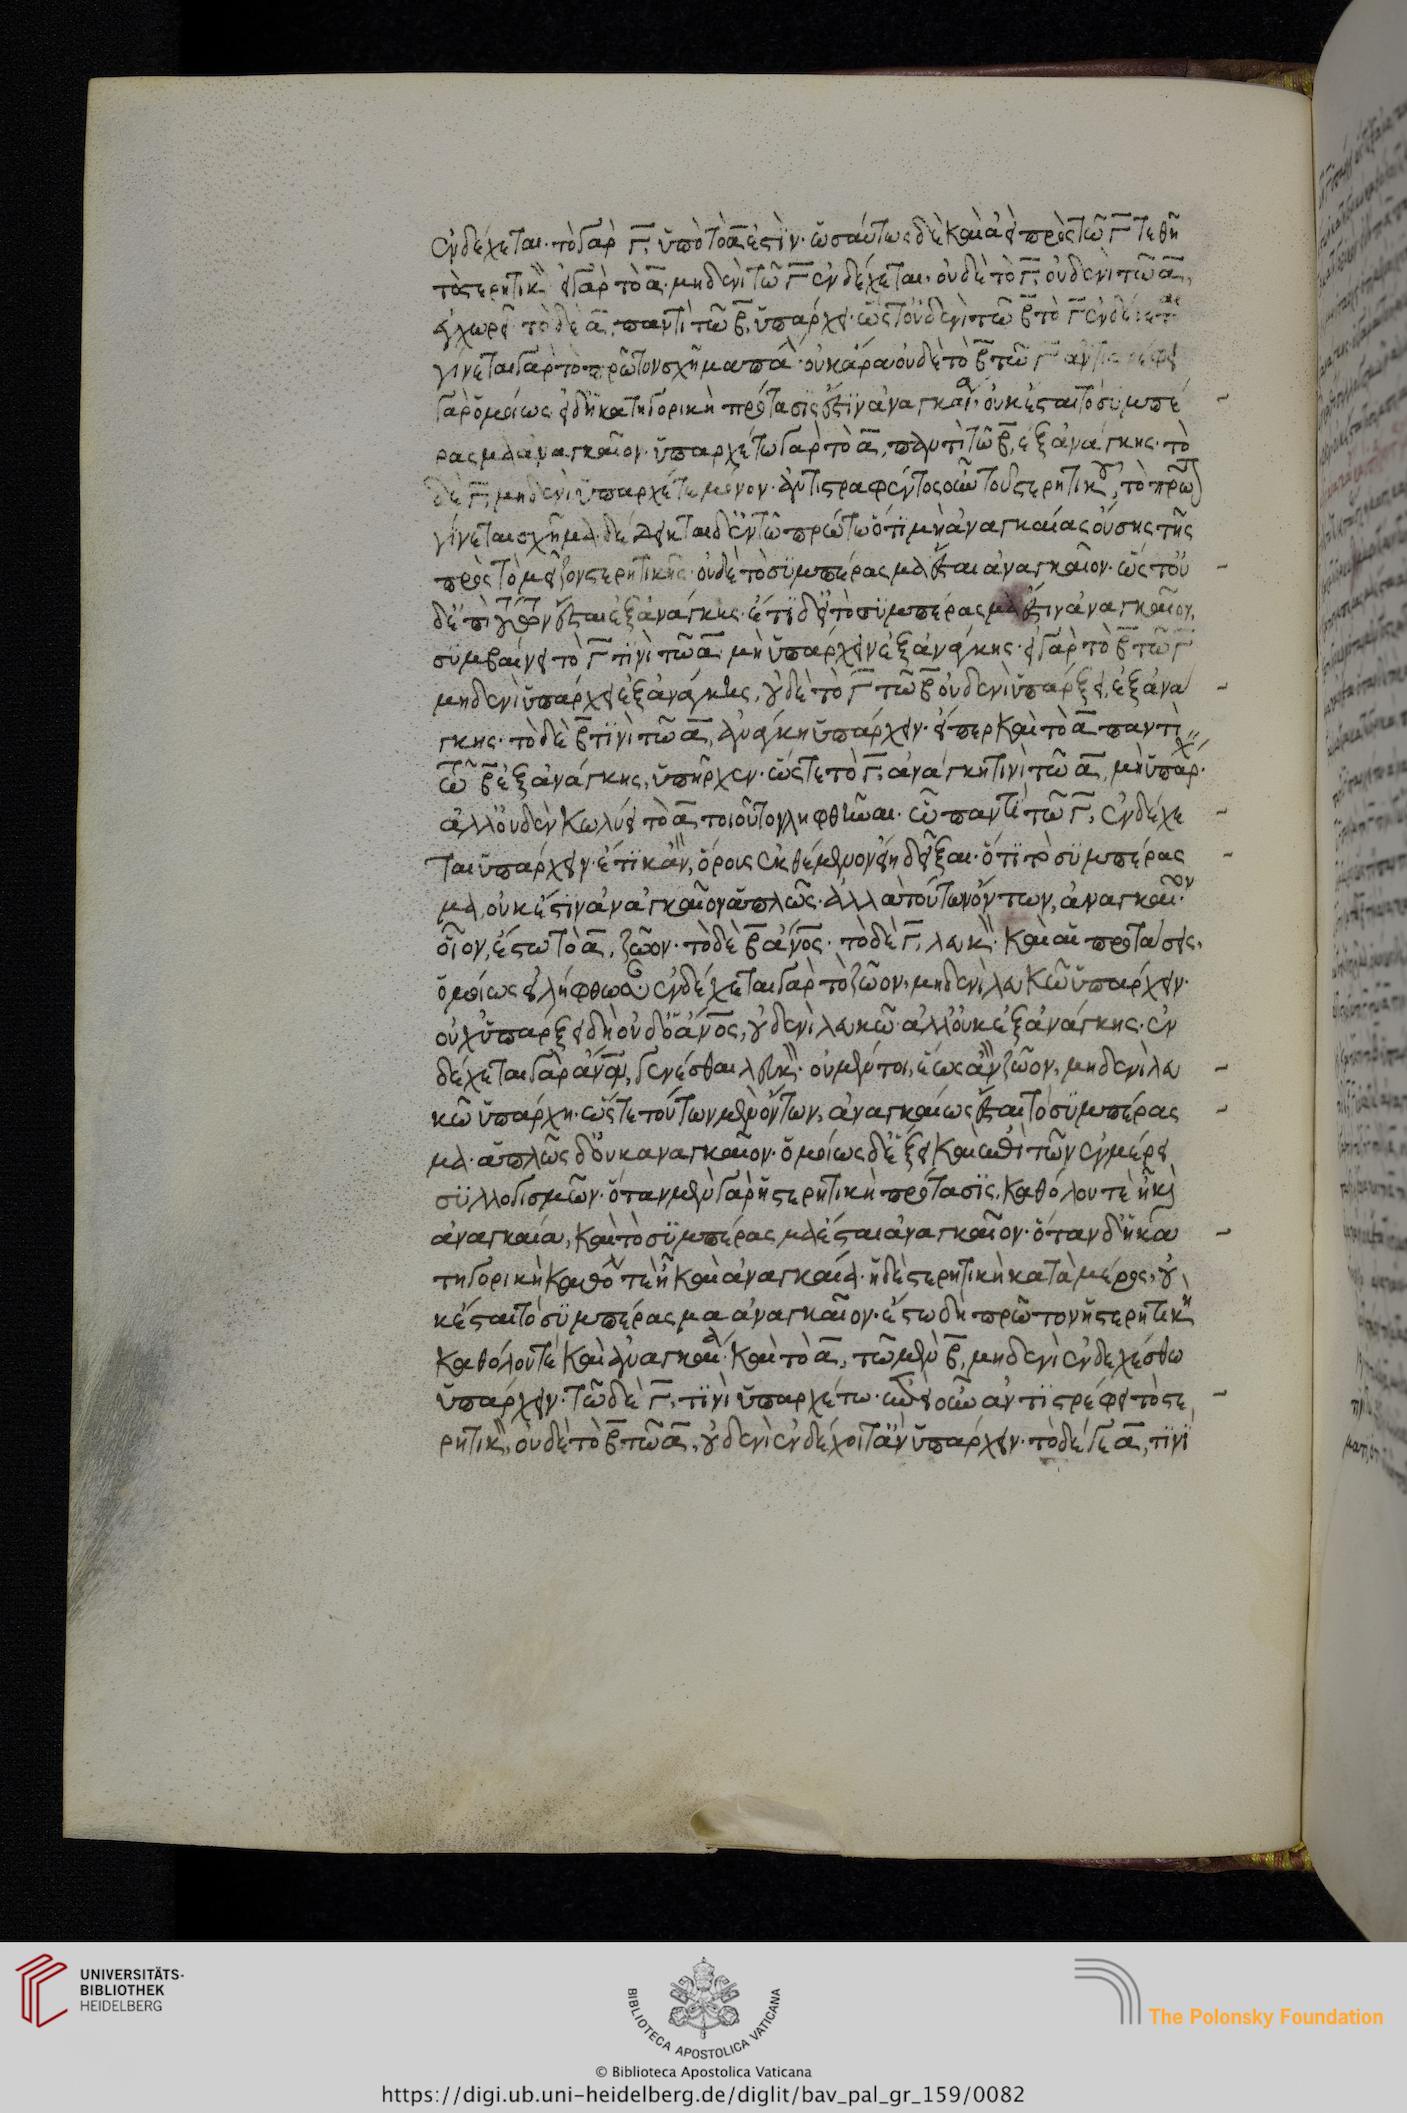 ἐνδέχεται· τὸ γὰρ Γ̅, ὑπὸ τὸ α̅ ἐστὶν· ὡσαύτως δὲ καὶ εἰ πρὸς τῶ Γ̅ τεθῆ
τὸ στερητικ̀ εἰ γὰρ τὸ α̅· μηδενὶ τῶ Γ̅ ἐνδέχεται· οὐδὲ τὸ Γ̅, οὐδενὶ τῶ α̅,
ἐγχωρεῖ τὸ δὲ α̅, παντὶ τῶ β̅, ὑπάρχει· ὥστ' οὐδενὶ τῶ β̅ τὸ Γ̅ ἐνδέχεται
γίνεται γὰρ τὸ πρῶτον σχῆμα πάλ· οὐκ ἄρα οὐδὲ τὸ β̅ τῶ Γ̅ ἀντιστρέφει
γὰρ ὁμοίως· εἰ δ' ἡ κατηγορικὴ πρότασίς ἐστϊν ἀναγκαία· οὐκ ἔσται τὸ συμπέ
ρασμα ἀναγκαῖον· ὑπαρχέτω γὰρ τὸ α̅, παντὶ τῶ β̅, ἐξ ἀνάγκης· τὸ
δὲ Γ̅, μηδενὶ ὑπαρχέτω μόνον· ἀντιστραφέντος οὖν τοῦ στερητικοῦ, τὸ πρῶτ
γίνεται σχῆμα· δέδεικται δ' ἐν τῶ πρώτω ὅτϊ μὴ ἀναγκαίας οὔσης τῆς
πρὸς τὸ μεῖζον στερητικῆς· οὐδὲ τὸ συμπέρασμα ἔσται ἀναγκαῖον· ὥστ' οὐ
δ' ἐπὶ τούτων ἔσται ἐξ ἀνάγκης· ἔτι δ' εἰ τὸ συμπέρασμα ἐστιν ἀναγκαῖον,
συμβαίνει τὸ Γ̅ τϊνὶ τῶ α̅ μὴ ὑπάρχειν ἐξ ἀνάγκης· εἰ γὰρ τὸ β̅ τῶ Γ̅
μηδενὶ ὑπάρχει ἐξ ἀνάγκης, οὐδὲ τὸ Γ̅ τῶ β̅ οὐδενὶ ὑπάρξει, ἐξ ἀνα
γκης· τὸ δὲ β̅ τϊνὶ τῶ α̅, ἀνάγκη ὑπάρχειν· εἴπερ καὶ τὸ α̅ παντὶ
τῶ β̅ ἐξ ἀνάγκης, ὑπῆρχεν· ὥστε τὸ Γ̅, ἀνάγκη τινὶ τῶ α̅, μὴ ὑπάρχ·
ἀλλ' οὐδὲν κωλύει τὸ α̅ τοιοῦτον ληφθῆναι· ὧ παντὶ τῶ Γ̅, ἐνδέχε
ται ὑπάρχειν· ἔτϊ κἂν, ὅρους ἐκθέμενον εἴη δεῖξαι· ὅτϊ τὸ συμπέρας
μα, οὐκ ἔστϊν ἀναγκαῖον ἁπλῶς· ἀλλὰ τούτων ὄντων, ἀναγκαῖον·
οἷον, ἔστω τὸ α̅, ζῶον· τὸ δὲ β̅ ἄνο̅ς· τὸ δὲ Γ̅, λευκ̀· καὶ αἱ προτάσεις,
ὁμοίως εἰλήφθωσ· ἐνδέχεται γὰρ τὸ ζῶον, μηδενὶ λευκῶ ὑπάρχειν·
οὐχ ὑπάρξει δὴ οὐδ' ὁ ἄνο̅ς, οὐδενὶ λευκῶ· ἀλλ' οὐκ ἐξ ἀνάγκης· ἐν
δέχεται γὰρ ἄνο̅ν, γενέσθαι λευκ̀· οὐ μέντοι, ἕως ἂν ζῶον, μηδενὶ λευ
κῶ ὑπάρχη· ὥστε τούτων μὲν ὄντων, ἀναγκαίως ἔσται τὸ συμπέρας
μα· ἁπλῶς δ' οὐκ αναγκαῖον· ὁμοίως δ' ἕξει καὶ ἐπὶ τῶν ἐν μέρει
συλλογισμῶν· ὅταν μὲν γὰρ ἡ στερητικὴ πρότασϊς, καθόλου τὲ ἦ κ̀
ἀναγκαία, καὶ τὸ συμπέρασμα ἔσται ἀναγκαῖον· ὅταν δ' ἡ κα
τηγορικὴ καθό τὲ ἦ καὶ ἀναγκαία· ἡ δὲ στερητικὴ κατὰ μέρος, οὐ
κ ἔσται τὸ συμπέρασμα ἀναγκαῖον· ἔστω δὴ πρῶτον ἡ στερητικὴ
καθόλου τὲ καὶ ἀναγκαία· καὶ τὸ α̅, τῶ μὲν β̅, μηδενὶ ἐνδεχέσθω
ὑπάρχειν· τῶ δὲ Γ̅, τϊνὶ ὑπαρχέτω· ἐπεὶ οὖν ἀντϊστρέφει τὸ στε
ρητικ̀, οὐδὲ τὸ β̅ τῶ α̅, οὐδενὶ ἐνδέχοιτ' ἂν ὑπάρχειν· τὸ δέ γε α̅, τϊνὶ
UNIVERSITÄTS-
BIBLIOTHEK
HEIDELBERG
BIBLIOTECA APOSTOLICA VATICANA
The Polonsky Foundation
© Biblioteca Apostolica Vaticana
https://digi.ub.uni-heidelberg.de/diglit/bav_pal_gr_159/0082